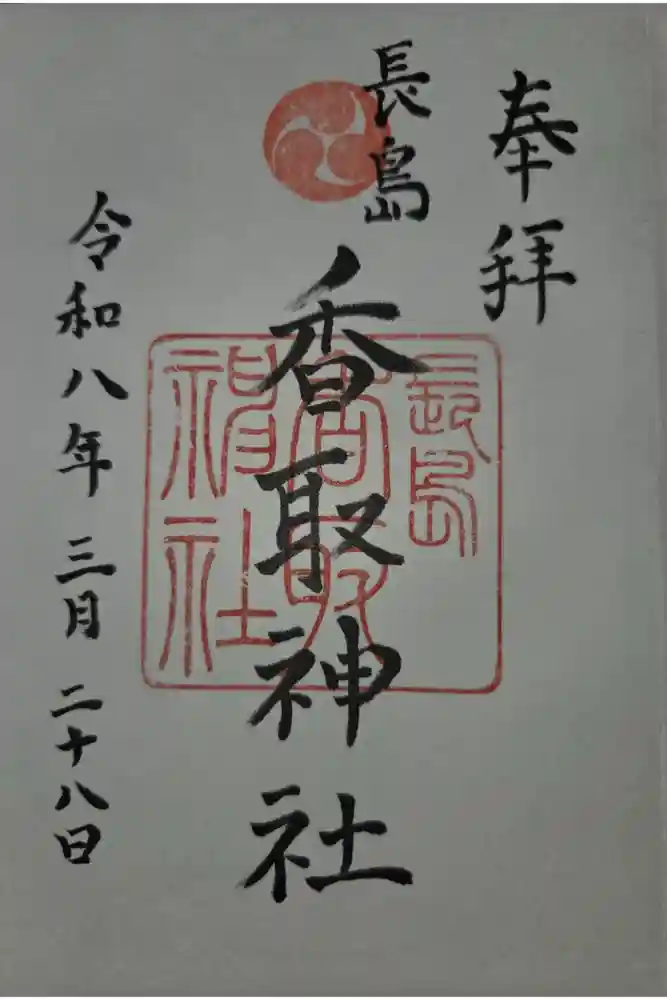 奉拝
長島
香取神社
令和八年三月二十八日
長島
香取
神社